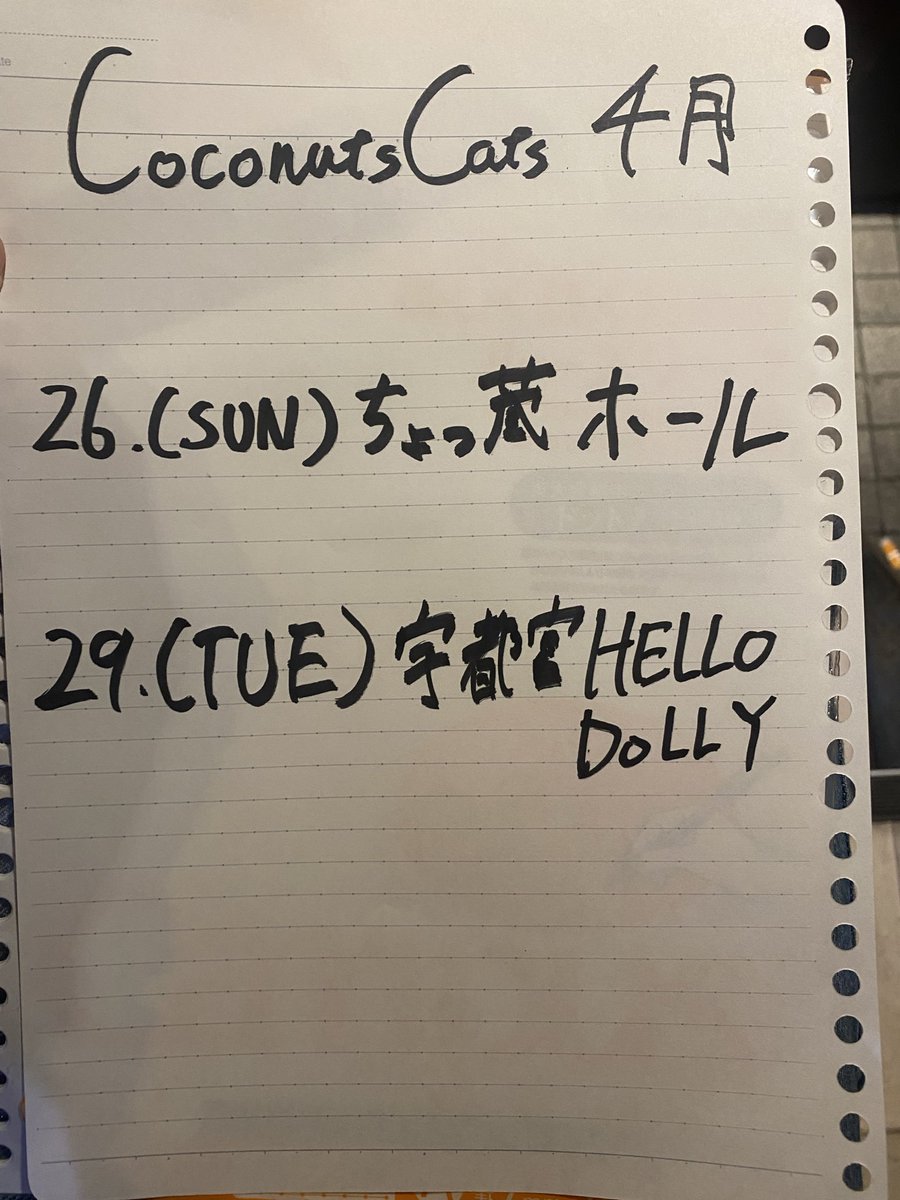 CoconutsCats 4月
26.(SUN) ちょっ蔵 ホール
29.(TUE) 宇都宮 HELLO
DOLLY